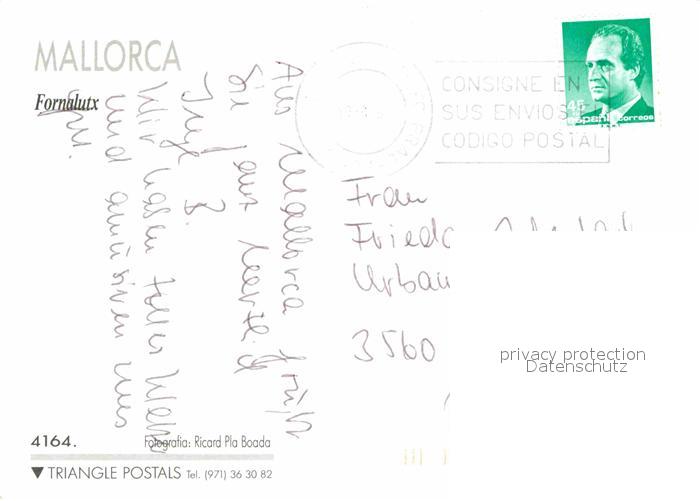 MALLORCA
Fornalutx
Aus Mallorca grüßt
Sie aus
3.
Wir haben tolles
und amüsieren uns
CONSIGNE EN
SUS ENVIOS
CODIGO POSTAL
45
España correos
Frau
Urban
3560
privacy protection
Datenschutz
4164.
Fotografia: Ricard Pla Boada
▼ TRIANGLE POSTALS Tel. (971) 36 30 82